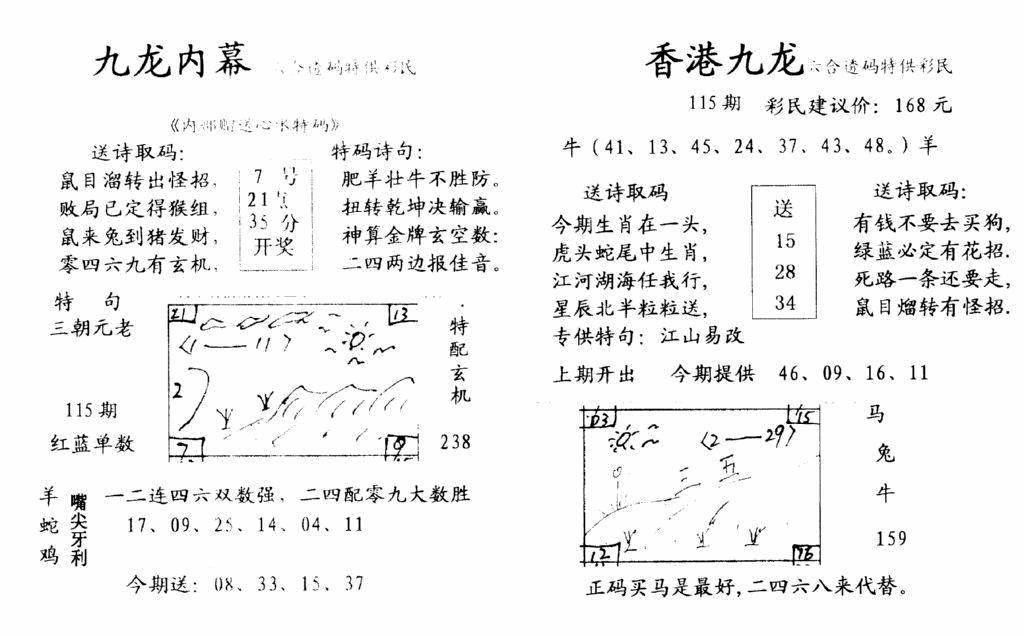 九龙内幕
六合透码特供彩民
《内部赠送心水特码》
送诗取码:
鼠目溜转出怪招,
败局已定得猴组,
鼠来兔到猪发财,
零四六九有玄机,
7 号
21
35 分
开奖
特码诗句:
肥羊壮牛不胜防。
扭转乾坤决输赢。
神算金牌玄空数:
二四两边报佳音。
特 句
三朝元老
115 期
红蓝单数
21
13
〈1——11〉
2
7
9
特配玄机
238
羊
蛇
鸡
嘴尖牙利
一二连四六双数强, 二四配零九大数胜
17、09、25、14、04、11
今期送: 08、33、15、37
香港九龙
六合透码特供彩民
115 期 彩民建议价: 168 元
牛 (41、13、45、24、37、43、48。) 羊
送诗取码
今期生肖在一头,
虎头蛇尾中生肖,
江河湖海任我行,
星辰北半粒粒送,
专供特句: 江山易改
送
15
28
34
送诗取码:
有钱不要去买狗,
绿蓝必定有花招.
死路一条还要走,
鼠目熘转有怪招.
上期开出 今期提供 46、09、16、11
03
15
〈2——29〉
三 五
12
马
兔
牛
159
正码买马是最好,二四六八来代替。